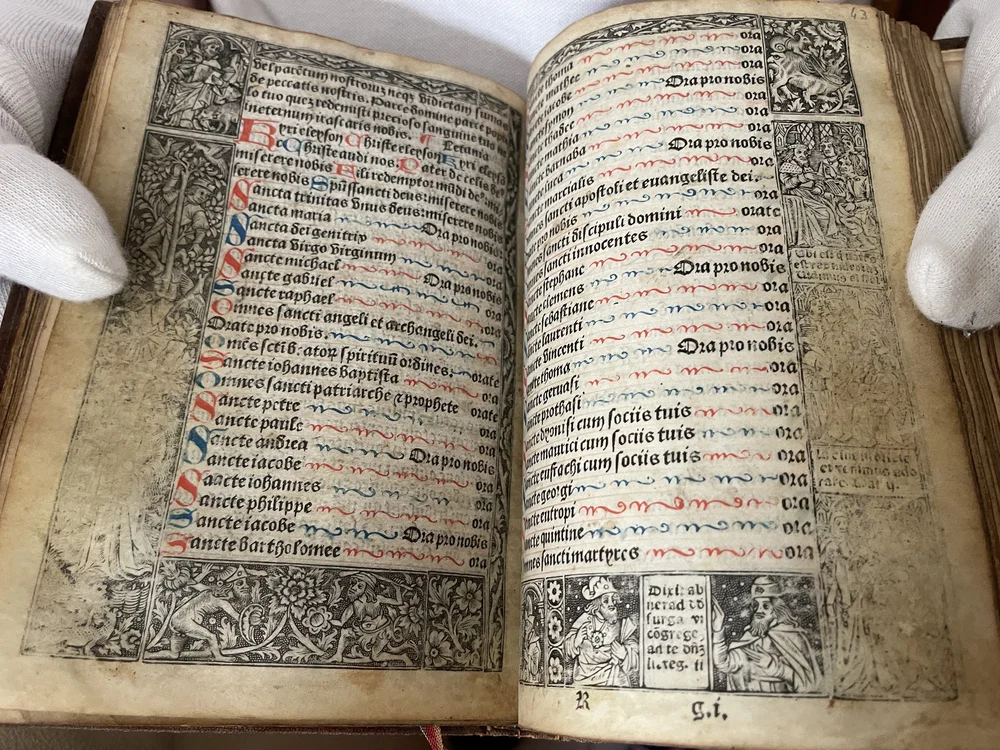 vel parētum nostroruz neqz vīdictam sumas
de peccatis nostris. Parce domine parce popu
lo tuo quez redemisti precioso sanguine tuo
ineternum irascaris nobis. Letania
Kyri eleyson Christe eleyson Kyri eleyson
Christe audi nos. Pater de celis deus
miserere nobis Fili redemptor mūdi de⁹ mise
rere nobis Spūssancti deus: miserere nobis
Sancta trinitas vnus deus: miserere nobis
Sancta maria Ora pro nobis
Sancta dei genitrix ora
Sancta virgo virginum ora
Sancte michael Ora pro nobis
Sancte gabriel ora
Sancte raphael ora
Omnes sancti angeli et archangeli dei.
Orate pro nobis.
Omēs scti b̄ator̄ spirituū ordines. orate
Sancte iohannes baptista ora
Omnes sancti patriarche ⁊ prophete orate
Sancte petre ora
Sancte paule ora
Sancte andrea Ora pro nobis
Sancte iacobe ora
Sancte iohannes ora
Sancte philippe ora
Sancte iacobe Ora pro nobis
Sancte bartholomee ora
43
ora
thoma ora
mathee ora
iacobe Ora pro nobis
symon ora
ora
mathia ora
barnaba Ora pro nobis
luca ora
marcialis ora
omnes sancti apostoli et euangeliste dei.
orate pro nobis ora
omnes sancti discipuli domini orate
omnes sancti innocentes ora
Sancte stephane ora
Sancte clemens Ora pro nobis
Sancte sebastiane ora
Sancte laurenti ora
Sancte vincenti ora
Sancte thoma Ora pro nobis
Sancte geruasi ora
Sancte prothasi ora
Sancte dyonisi cum sociis tuis ora
Sancte maurici cum sociis tuis ora
Sancte eustachi cum sociis tuis ora
Sancte georgi ora
Sancte eutropi ora
Sancte quintine ora
Omnes sancti martyres ora
et venimus ado
Dixit ab
ner ad dd
surgā vt
cōgrege
ad te oñz
ii. reg. iī
R
g.i.